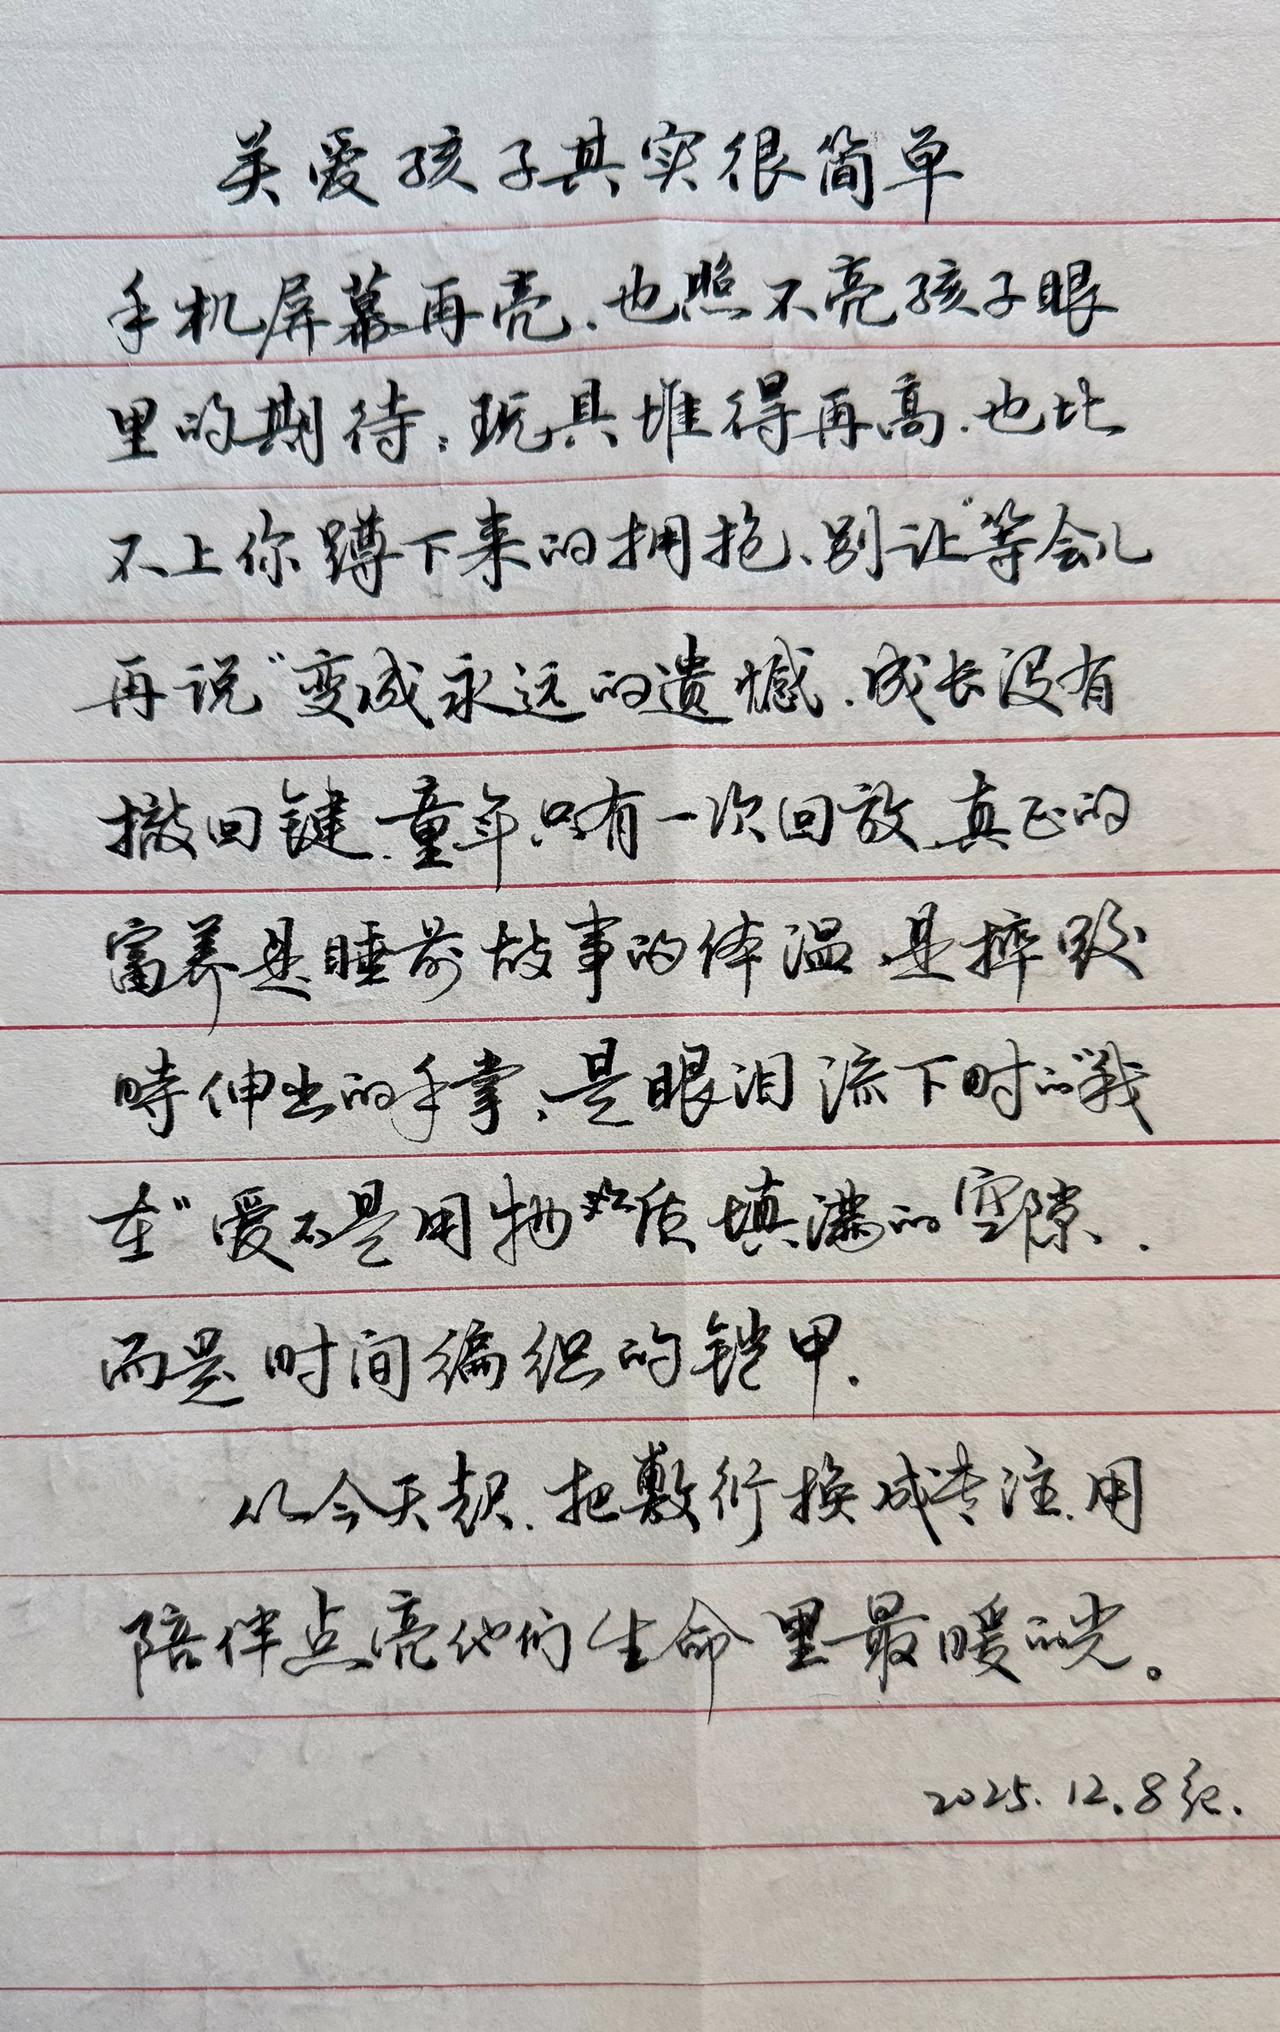 关爱孩子其实很简单
手机屏幕再亮.也照不亮孩子眼
里的期待;玩具堆得再高.也比
不上你蹲下来的拥抱、别让"等会儿
再说"变成永远的遗憾.成长没有
撤回键.童年只有一次回放.真正的
富养是睡前故事的体温.是摔跤
時伸出的手掌、是眼泪流下时的"我
在"爱不是用物质填满的空隙、.
而是时间编织的铠甲.
从今天起.把敷衍换成专注.用
陪伴点亮他们生命里最暖的光。
2025.12.8